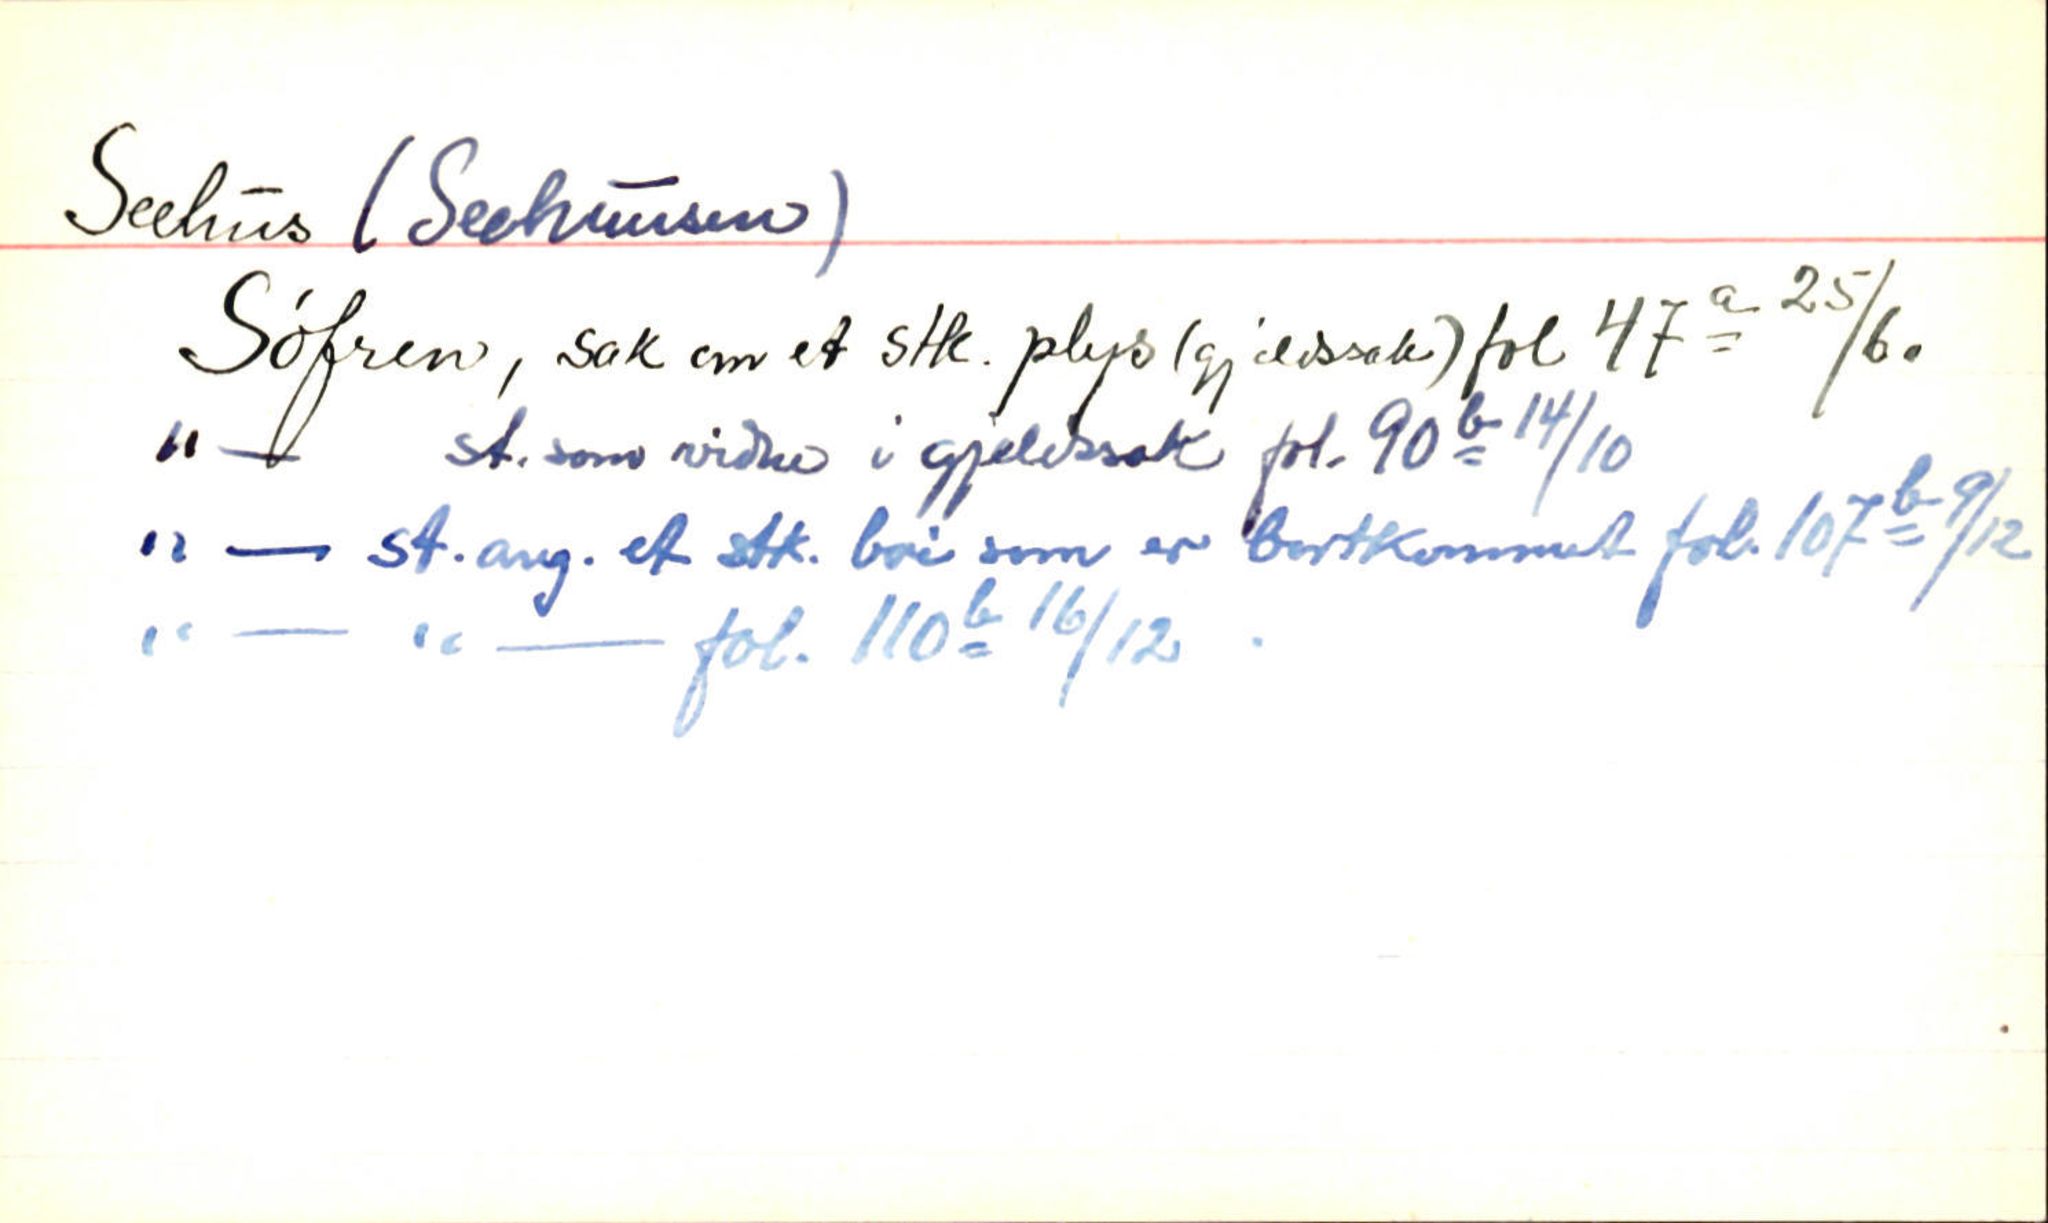 Seehūs (Seehuūsen)
Söfren, sak om et stk. plys (gjeldssak) fol 47a 25/6.
"— st. som vidne i gjeldssak fol. 90b 14/10
"— st. ang. et stk. boi som er bortkommet fol. 107b 9/12
"— "— fol. 110b 16/12.